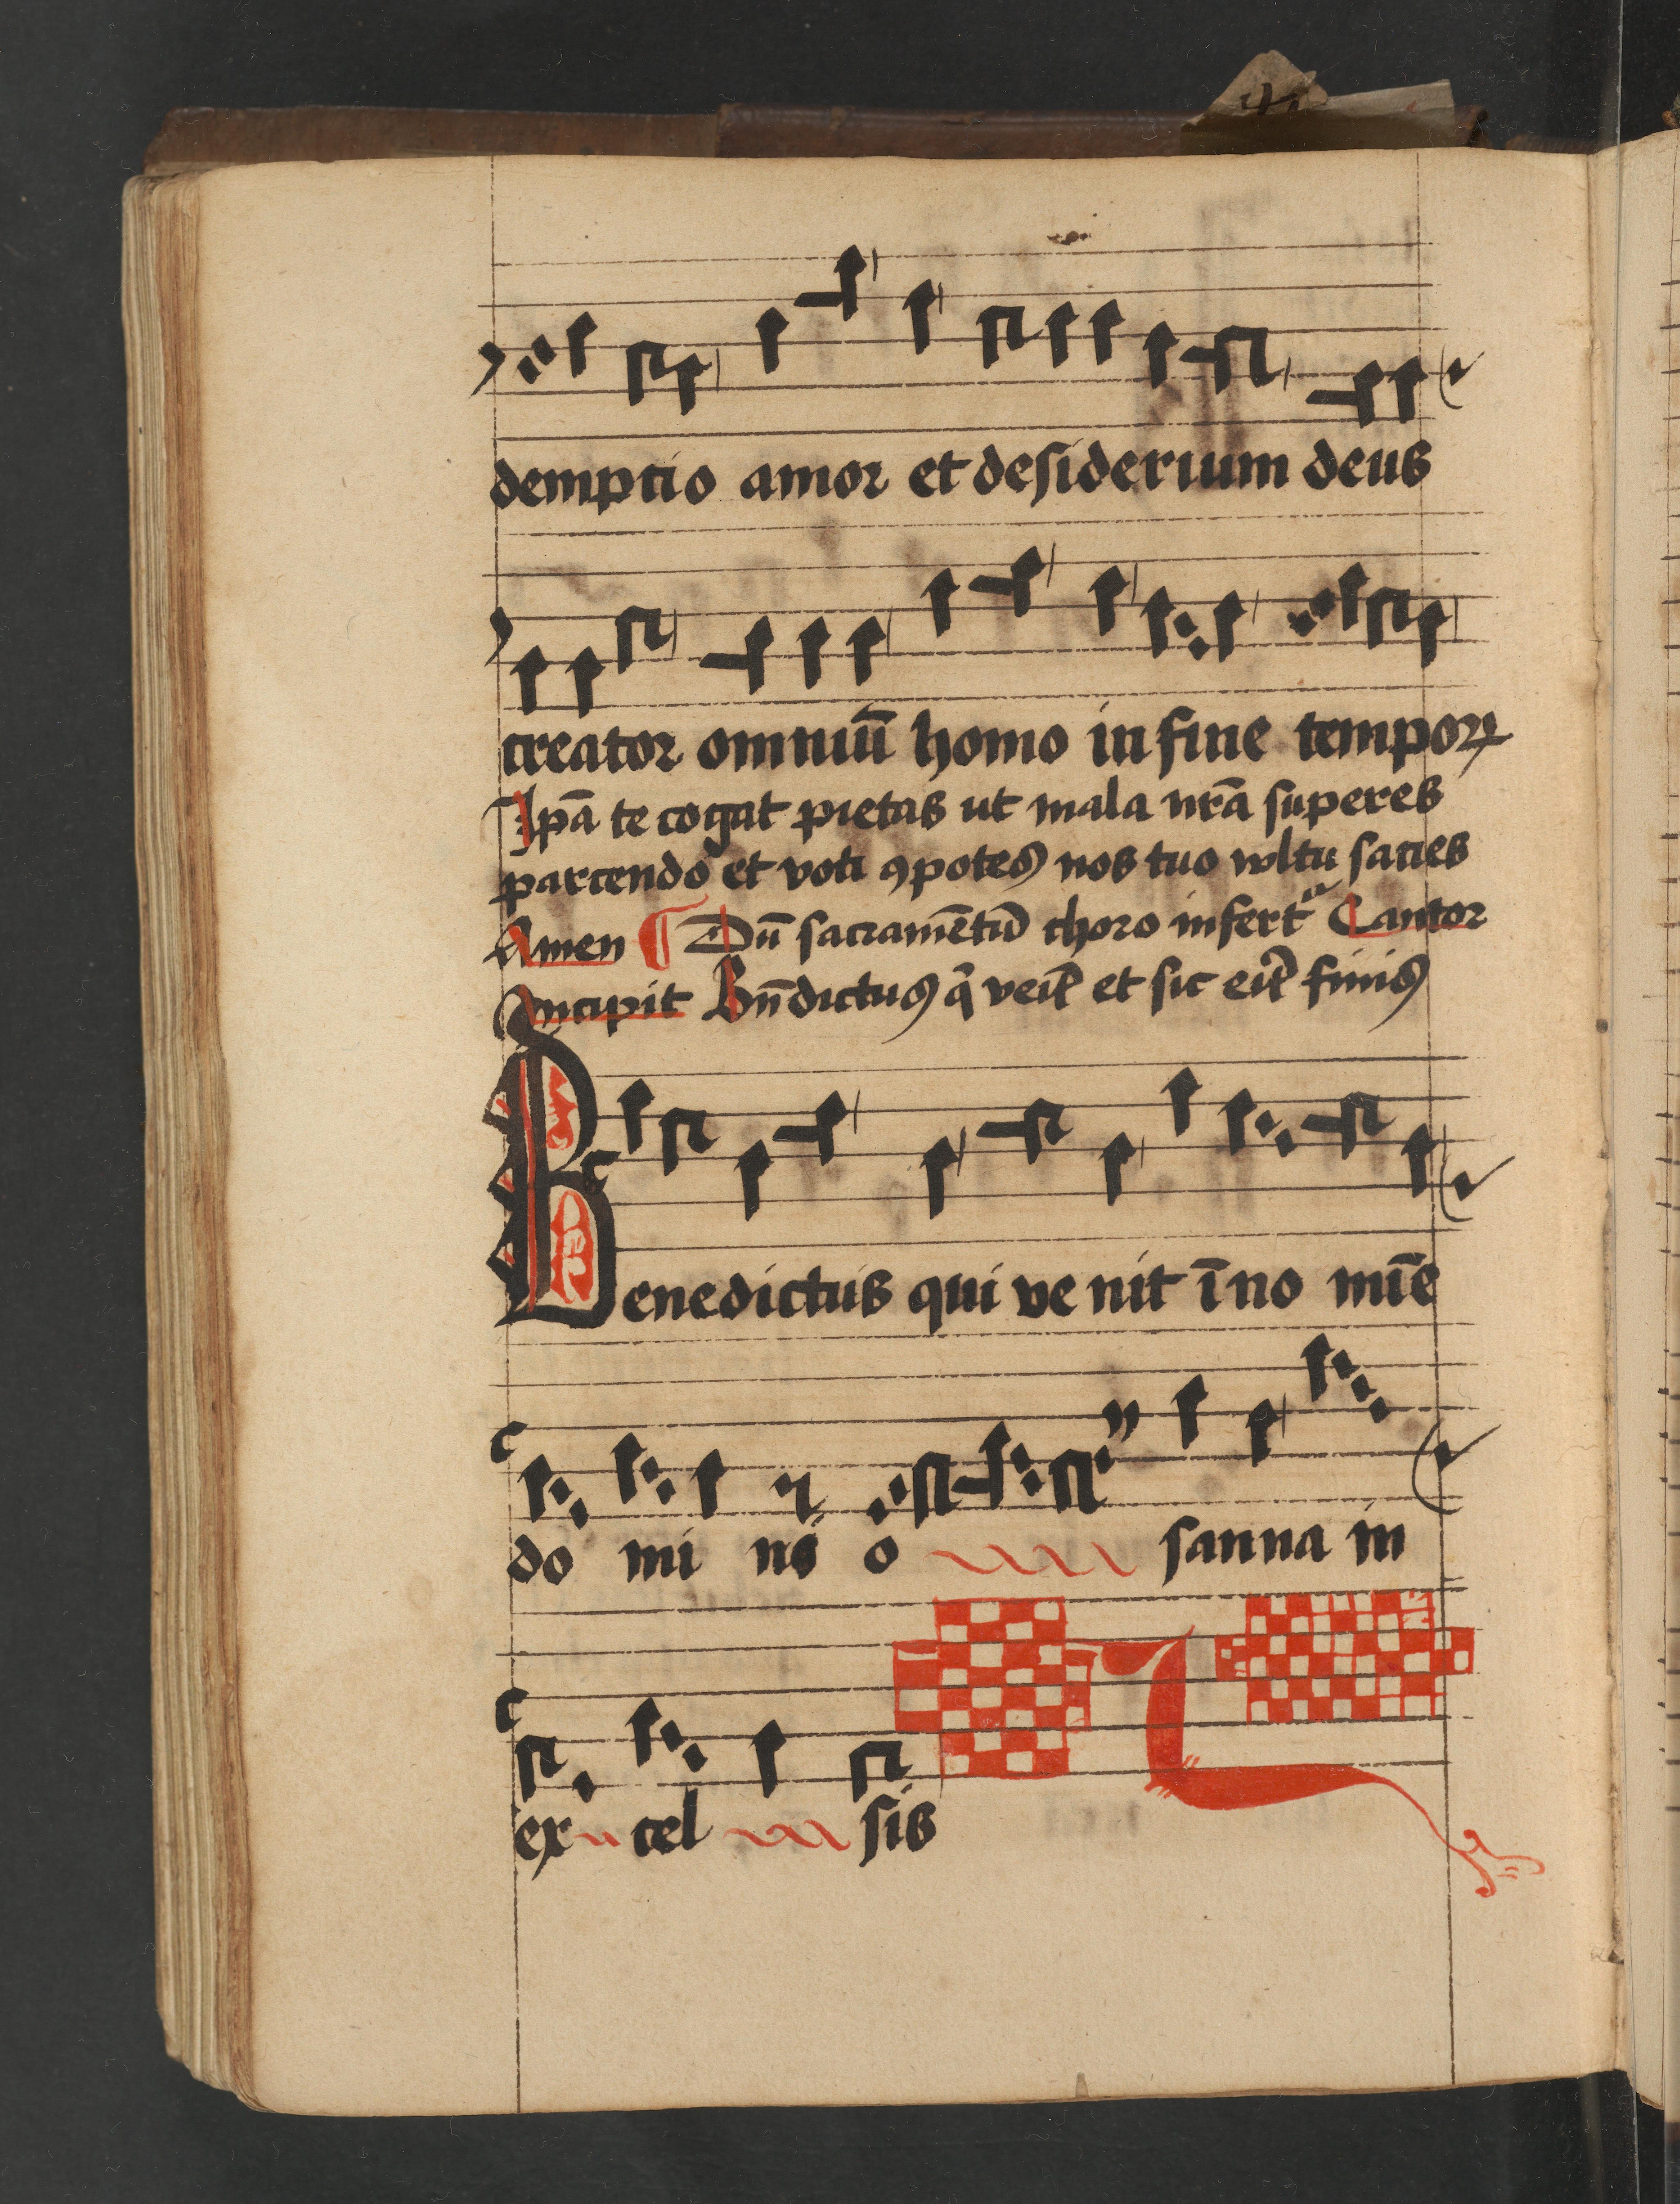 demptio amor et desiderium deus
creator omniū homo in fine temporꝝ
Ipā te cogat pietas ut mala nrā superes
parcendo et voti ꝯpotes nos tuo vultu sacies
Amen ¶ Dū sacramētū choro infertᷣ Cantor
incipit Bn̄dictus q̄ veit et sic eiꝰ finis
Benedictus qui ve nit ī no mīe
do mi ni o sanna in
ex cel sis